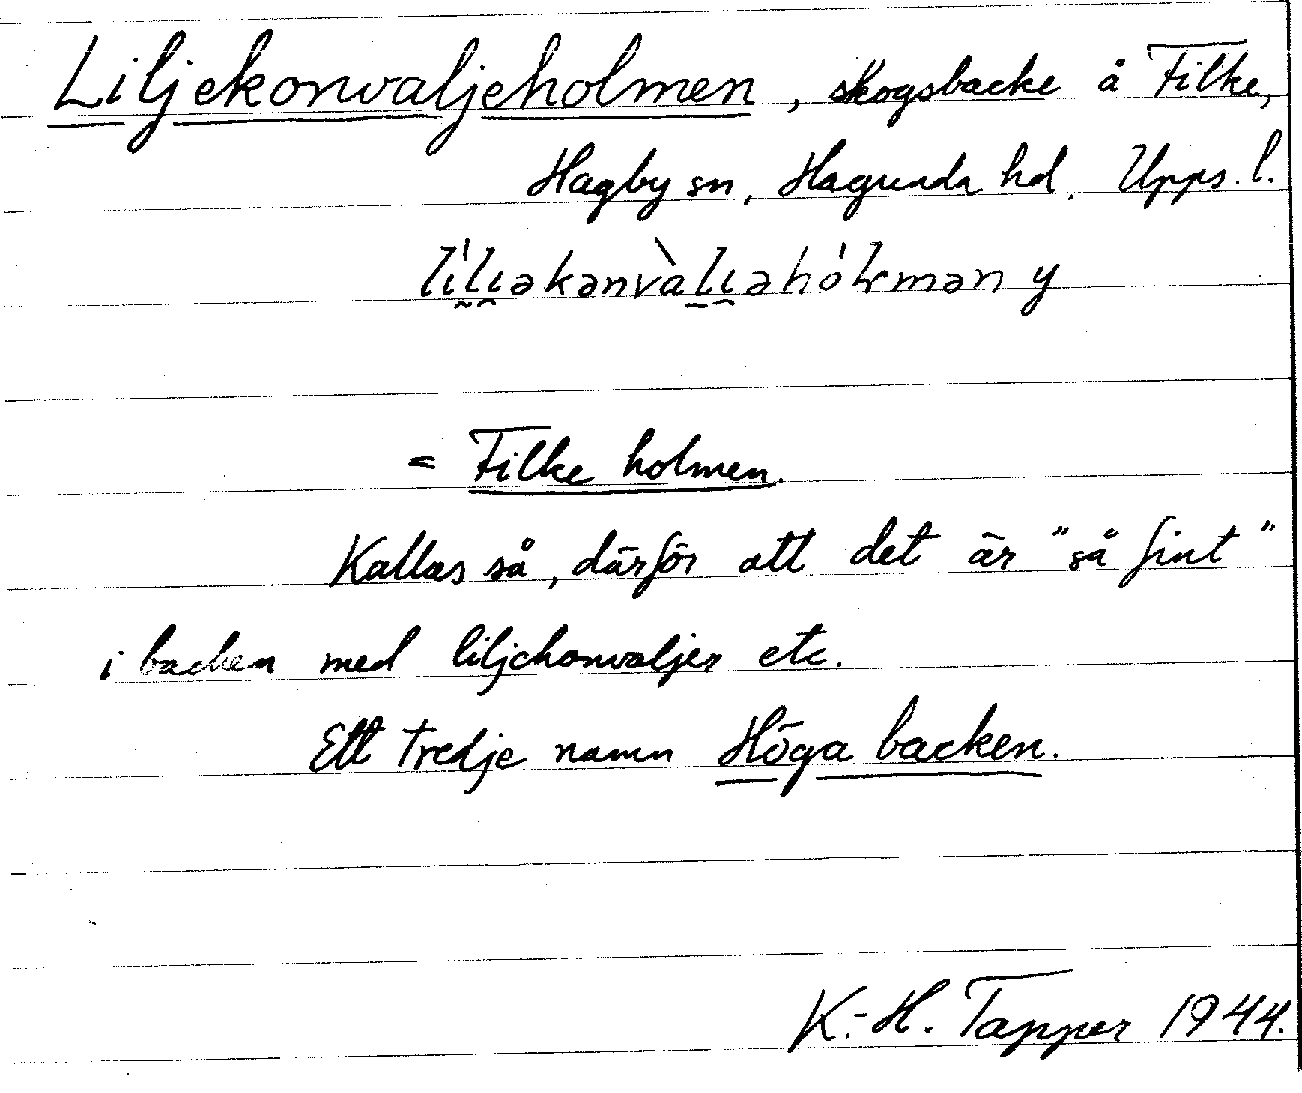 Liljekonvaljeholmen, skogsbacke å Filke,
Hagby sn, Hagunda hd. Upps. l.
li̇́lıəkənvàlıəhólmən y
= Filke holmen.
Kallas så, därför att det är "så fint"
i backen med liljekonvaljer etc.
Ett tredje namn Höga backen.
K.-H. Tapper 1944.